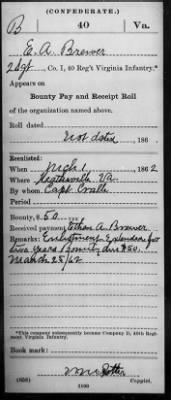 (CONFEDERATE.)
B 40 Va.
E. A. Brewer
2 Sgt, Co. I, 40 Reg't Virginia Infantry.*
Appears on
Bounty Pay and Receipt Roll
of the organization named above.
Roll dated
Not dated, 186
Reenlisted:
When Mch 1, 1862
Where Heathsville Va.
By whom Capt Cralle
Period
Bounty, $ 50
Received payment Ethan A. Brewer
Remarks: Enlistment Extended for
two years Bounty due $50.
March 25/62
*This company subsequently became Company D, 40th Regiment
Virginia Infantry.
Book mark:
(656) Copyist.